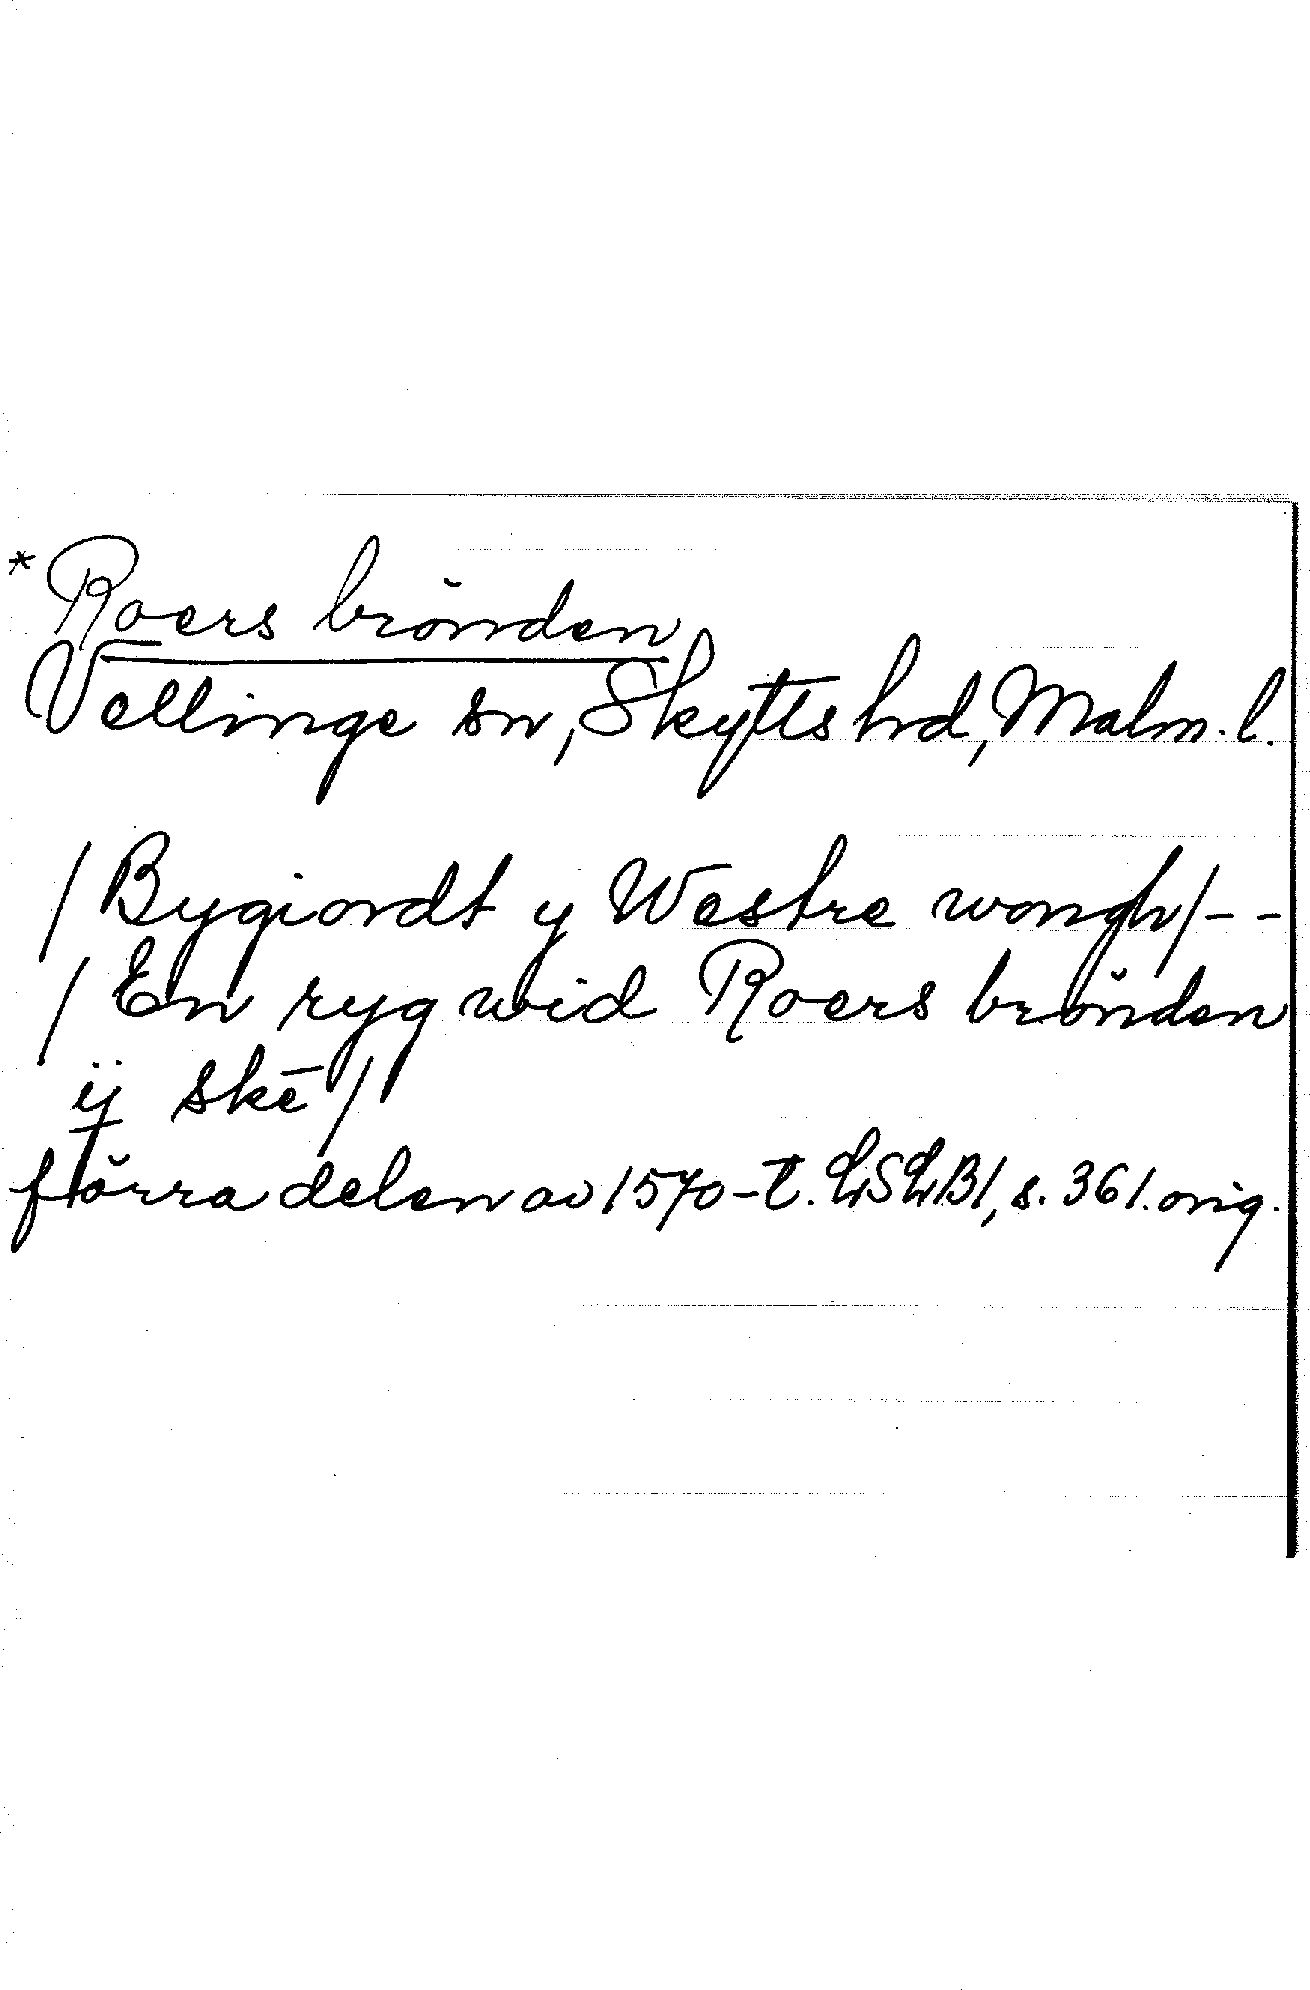 * Roers brönden
Vellinge sn, Skytts hd, Malm. l.
/ Bygiordt y Westre wongh / - -
/ En ryg wid Roers brönden
ij skē /
förra delen av 1570-t. LSLB1, s. 361. orig.